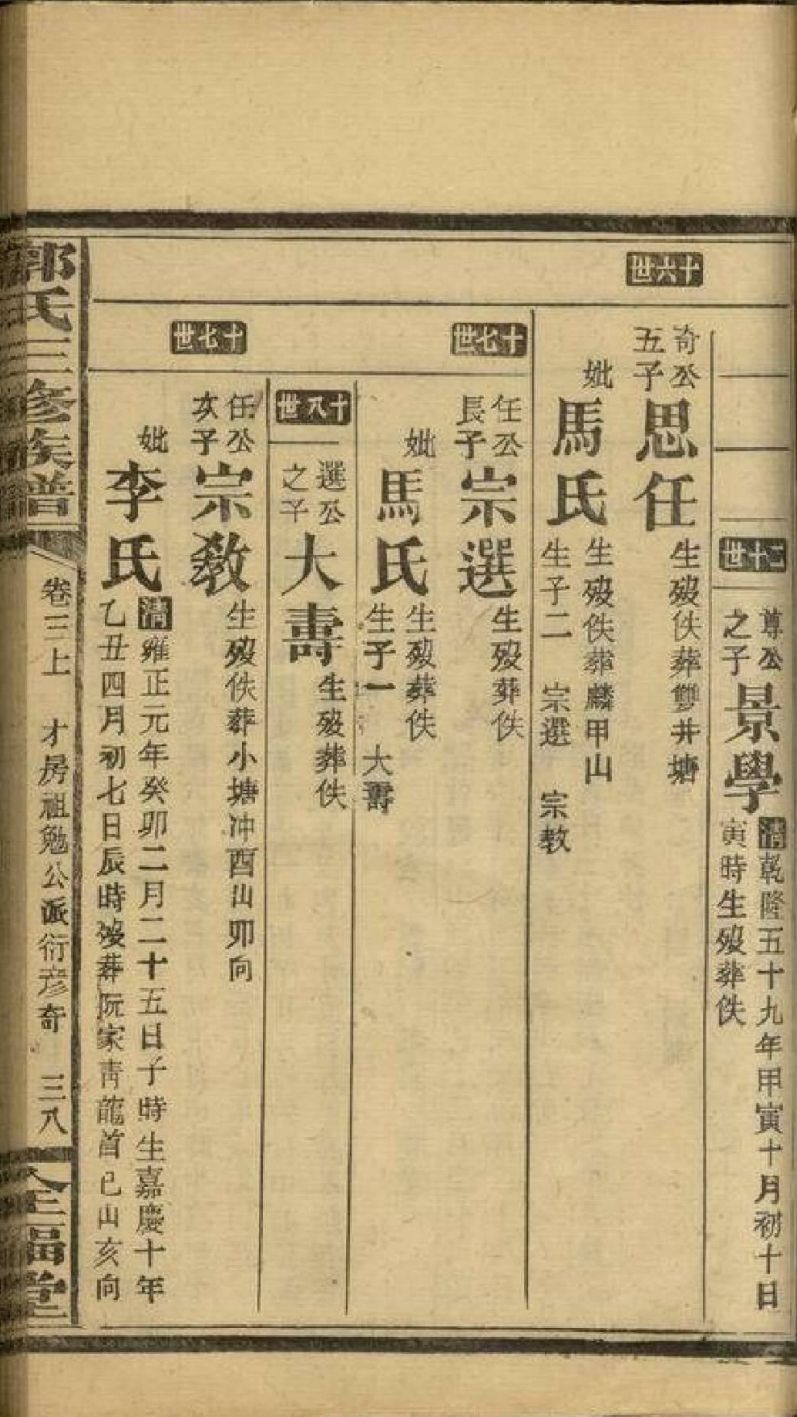 二十世
尊公
之子
景學
清乾隆五十九年甲寅十月初十日
寅時生歿葬佚
十六世
奇公
五子
思任
生歿佚葬雙井塘
妣
馬氏
生歿佚葬麟甲山
生子二 宗選 宗教
十七世
任公
長子
宗選
生歿葬佚
妣
馬氏
生歿葬佚
生子一 大壽
十八世
選公
之子
大壽
生歿葬佚
十七世
任公
次子
宗教
生歿佚葬小塘冲酉山卯向
妣
李氏
清雍正元年癸卯二月二十五日子時生嘉慶十年
乙丑四月初七日辰時歿葬阮家青龍首己山亥向
郭氏三修族譜
卷三上 才房祖勉公派衍彦奇 三八
三福堂